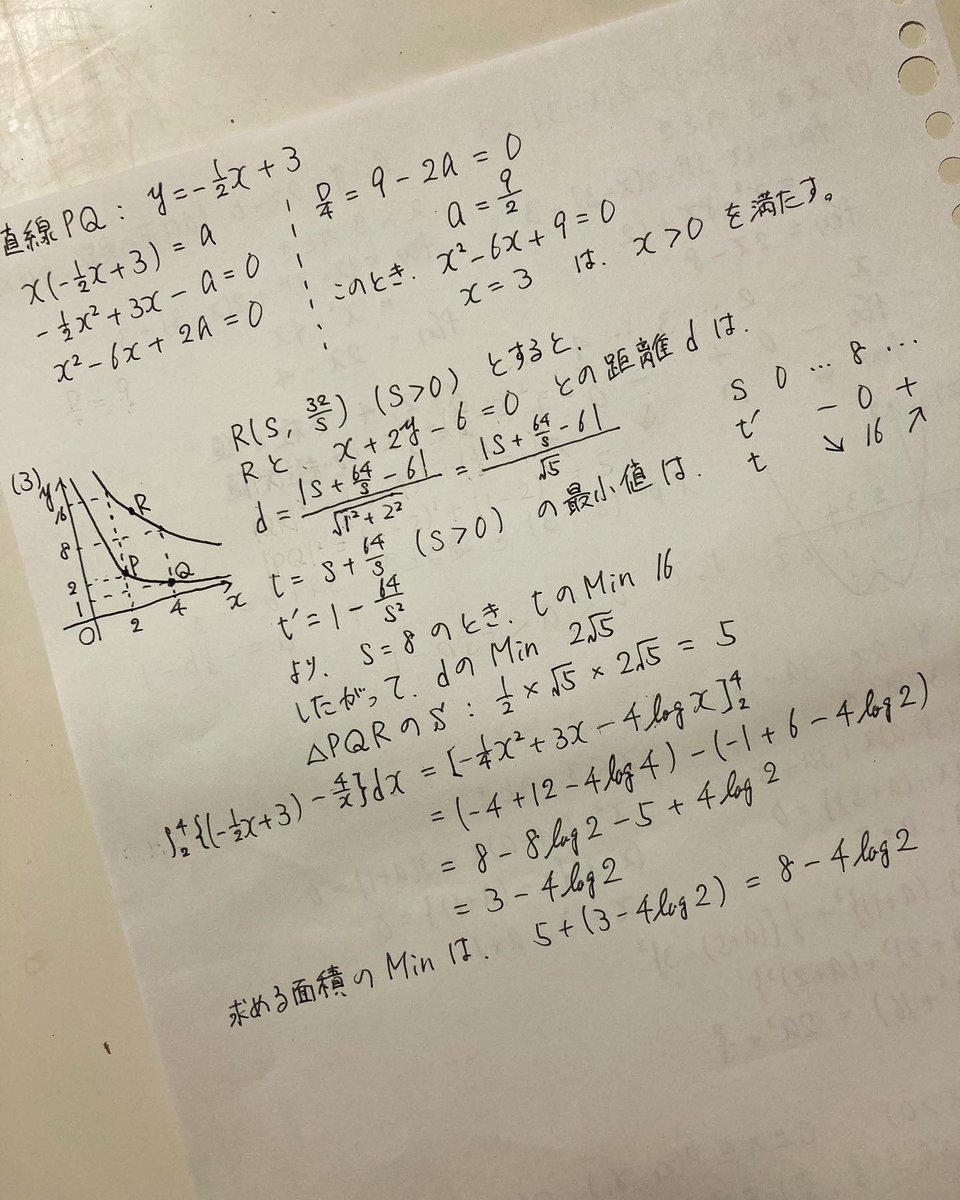 直線PQ: y=-1/2x+3
x(-1/2x+3)=a
-1/2x²+3x-a=0
x²-6x+2a=0
D/4=9-2a=0
a=9/2
このとき. x²-6x+9=0
x=3 は. x>0 を満たす。
(3)
y
16
8
2
1
O
2
4
x
R
P
Q
R(s, 32/s) (s>0) とすると.
Rと. x+2y-6=0 との距離dは.
d=|s+64/s-6|/√(1²+2²)=|s+64/s-6|/√5
t=s+64/s (s>0) の最小値は.
t'=1-64/s²
s 0 … 8 …
t' - 0 +
t ↘ 16 ↗
より. s=8のとき. tのMin 16
したがって. dのMin 2√5
△PQRのS: 1/2×√5×2√5=5
∫₂⁴{(-1/2x+3)-4/x}dx=[-1/4x²+3x-4logx]₂⁴
=(-4+12-4log4)-(-1+6-4log2)
=8-8log2-5+4log2
=3-4log2
求める面積のMinは. 5+(3-4log2)=8-4log2